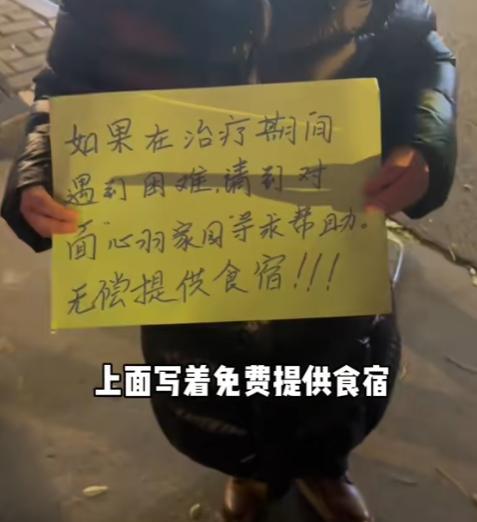 如果在治疗期间
遇到困难,请到对
面心羽家园寻求帮助。
无偿提供食宿!!!
上面写着免费提供食宿